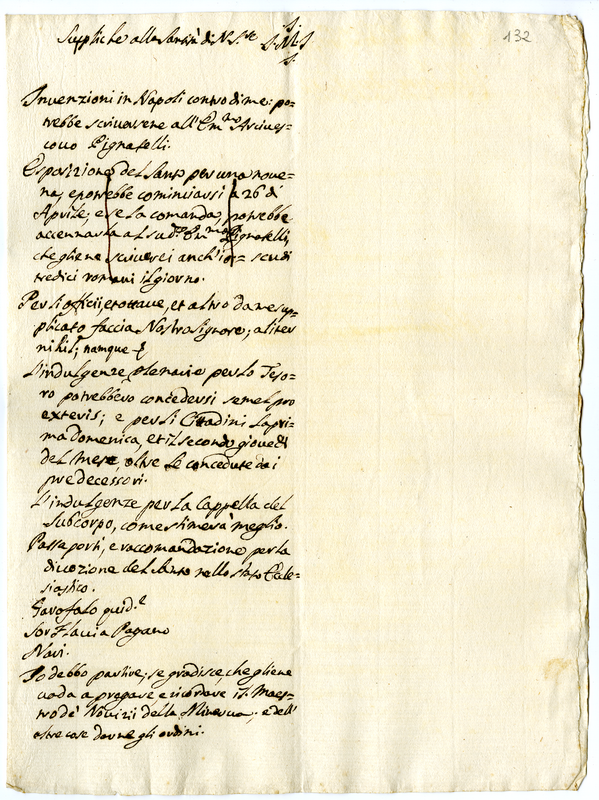 132
Suppliche alla Santità di N. S.re
Invenzioni in Napoli contro di me: po=
trebbe scrivavene all'Em.mo Arcives=
covo Pignatelli.
Esposizione del Santo per una nove=
na, e potrebbe cominciarsi a 26 di
Aprile; e se la comanda, potrebbe
accennarla al sud.o Em.mo Pignatelli,
che gliene scriverei anch'io= scudi
tredici romani il giorno.
Per li officii, et ottave, et altro da me sup=
plicato faccia Nostro Signore; aliter
nihil; namque
L'indulgenze plenarie per lo Teso=
ro potrebbero concedersi semel pro
exteris; e per li Cittadini la pri=
ma domenica, et il secondo giovedì
del mese, oltre le concedute dai
predecessori.
L'indulgenze per la Cappella del
Subcorpo, come stimerà meglio.
Passaporti, e raccomandazione per la
divozione del Santo nello stato Eccle=
siastico.
Garofalo quid.
Sor Flavia Pagano
Navi.
Io debbo partire; se gradisce, che gliene
vada a pregare e ricordare il Maes=
tro de' Novizii della Minerva; e dell'
altre cose darne gli ordini.